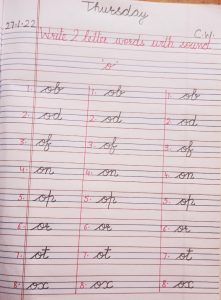 Thursday
27-1-22 C.W.
Write 2 letter words with sound
'o'
1. ob 1. ob 1. ob
2. od 2. od 2. od
3. of 3. of 3. of
4. on 4. on 4. on
5. op 5. op 5. op
6. or 6. or 6. or
7. ot 7. ot 7. ot
8. ox 8. ox 8. ox